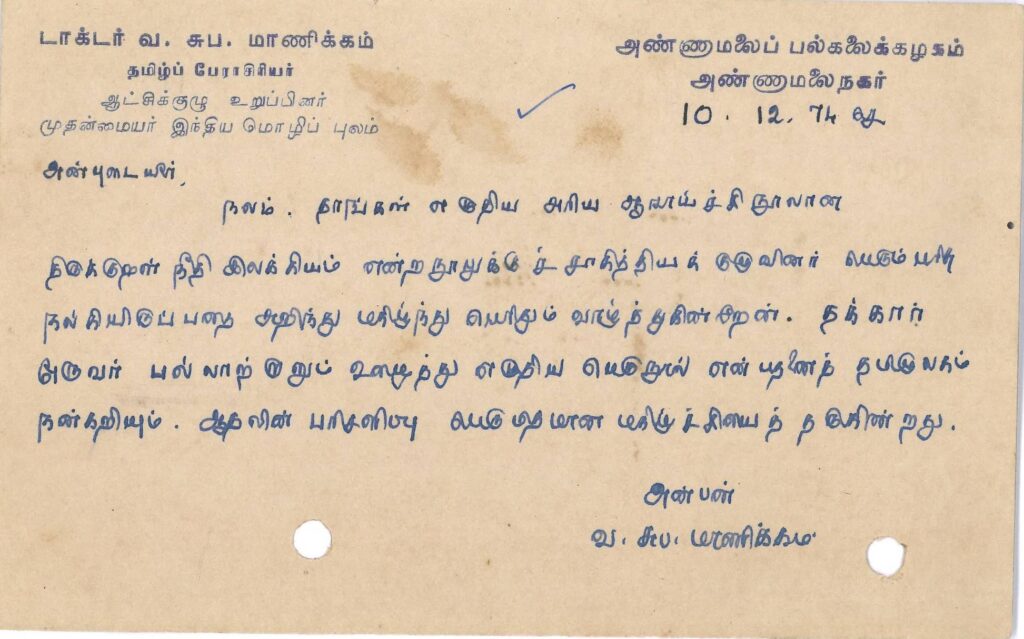 டாக்டர் வ. சுப. மாணிக்கம்
தமிழ்ப் பேராசிரியர்
ஆட்சிக்குழு உறுப்பினர்
முதன்மையர் இந்திய மொழிப் புலம்
அண்ணாமலைப் பல்கலைக்கழகம்
அண்ணாமலைநகர்
10. 12. 74
அன்புடையீர்,
நலம். தாங்கள் எழுதிய அரிய ஆராய்ச்சி நூலான
திருக்குறள் நீதி இலக்கியம் என்ற நூலுக்குச் சாகித்தியக் குழுவினர் பெரும்பரிசு
நல்கியிருப்பதை அறிந்து மகிழ்ந்து பெரிதும் வாழ்த்துகின்றேன். தக்கார்
ஒருவர் பல்லாற்றானும் உழைத்து எழுதிய பெருநூல் என்பதனைத் தமிழுலகம்
நன்கறியும். ஆதலின் பரிசளிப்பு பெருமிதமான மகிழ்ச்சியைத் தருகின்றது.
அன்பன்
வ. சுப. மாணிக்கம்